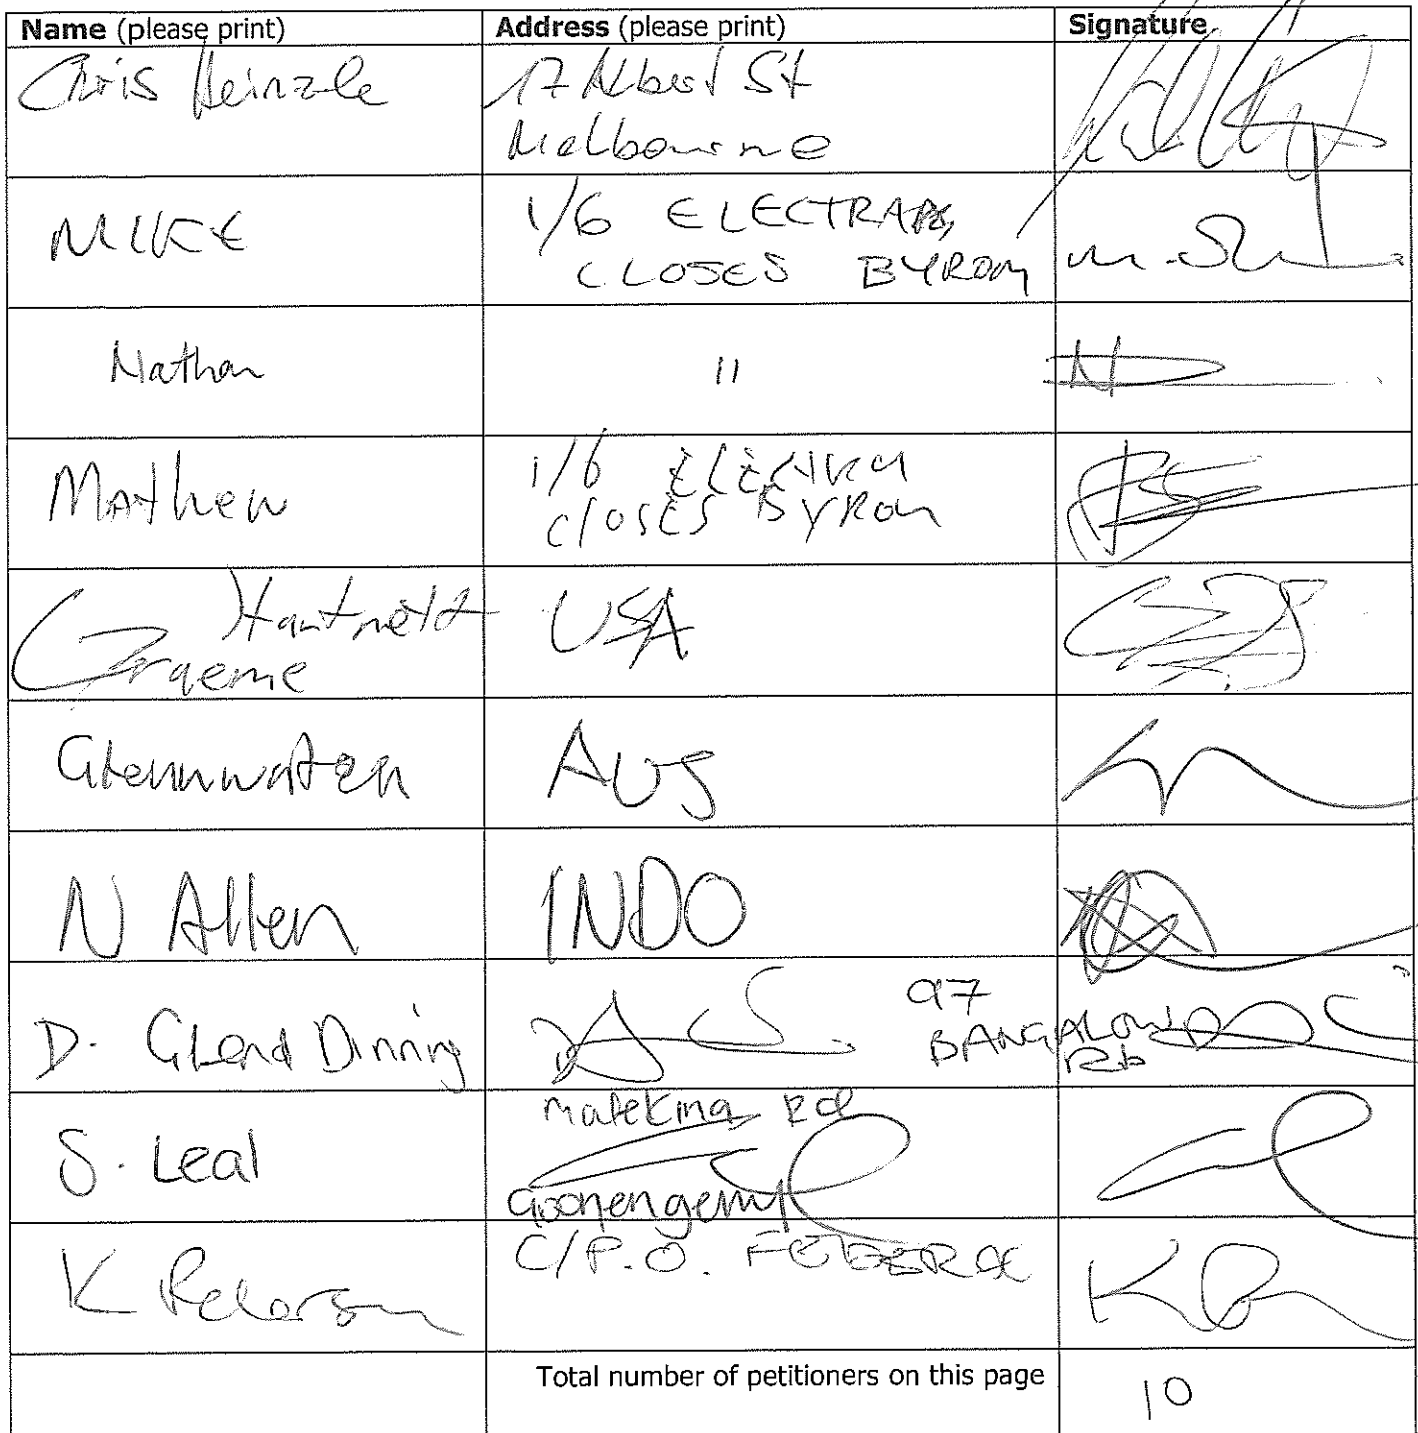 Name (please print) Address (please print) Signature
Chris Heinzle 17 Albert St
Melbourne
MIKE 1/6 ELECTRA
CLOSES BYRON
Nathan 11
Mathew 1/6 ELEKTRA
closes BYRON
Hartneld USA
Graeme
Glennwaten AUS
N Allen INDO
D. Glend Dinning 97
BANGALOW
Rd
S. Leal
Rd
Goonengerry
K Peterson C/P.O. FEDERAL
Total number of petitioners on this page 10